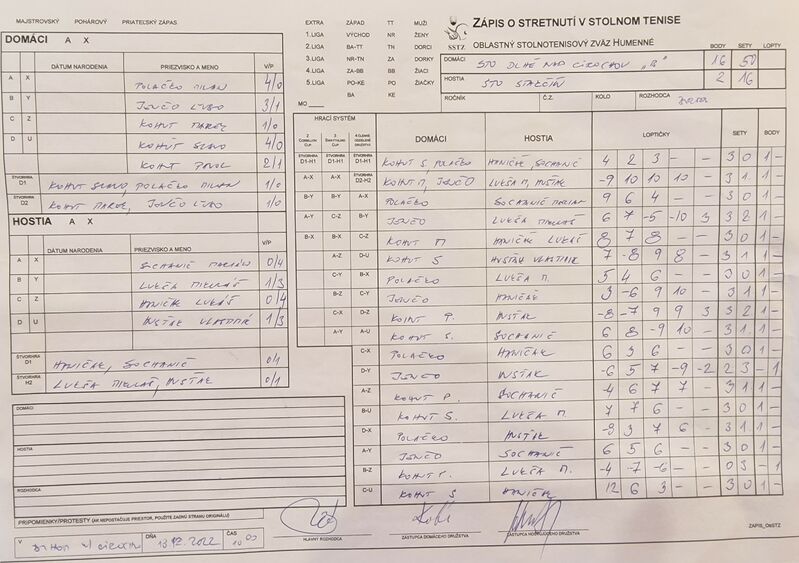 MAJSTROVSKÝ POHÁROVÝ PRIATEĽSKÝ ZÁPAS
DOMÁCI A X
DÁTUM NARODENIA PRIEZVISKO A MENO V/P
A X POLAČKO MILAN 4/0
B Y JENČO ĽUBO 3/1
C Z KOHUT MAREK 1/0
D U KOHUT SLAVO 4/0
KOHUT PAVOL 2/1
ŠTVORHRA D1 KOHUT SLAVO, POLAČKO MILAN 1/0
ŠTVORHRA D2 KOHUT MAREK, JENČO ĽUBO 1/0
HOSTIA A X
DÁTUM NARODENIA PRIEZVISKO A MENO V/P
A X SOCHANIČ MARIÁN 0/4
B Y LUKŠA MIKULÁŠ 1/3
C Z HANIČÁK LUKÁŠ 0/4
D U HUSŤÁK VLASTIMIL 1/3
ŠTVORHRA D1 HANIČÁK, SOCHANIČ 0/1
ŠTVORHRA H2 LUKŠA MIKULÁŠ, HUSŤÁK 0/1
DOMÁCI
HOSTIA
ROZHODCA
PRIPOMIENKY/PROTESTY (AK NEPOSTAČUJE PRIESTOR, POUŽITE ZADNÚ STRANU ORIGINÁLU)
V DLHOM N/ CIROCHOU DŇA 13.12.2022 ČAS
EXTRA ZÁPAD TT MUŽI
1.LIGA VÝCHOD NR ŽENY
2.LIGA BA-TT TN DORCI
3.LIGA NR-TN ZA DORKY
4.LIGA ZA-BB BB ŽIACI
5.LIGA PO-KE PO ŽIAČKY
MO BA KE
SSTZ
ZÁPIS O STRETNUTÍ V STOLNOM TENISE
OBLASTNÝ STOLNOTENISOVÝ ZVÄZ HUMENNÉ
BODY SETY LOPTY
DOMÁCI STO DLHÉ NAD CIROCHOU "B" 16 50
HOSTIA STO STAKČÍN 2 16
ROČNÍK Č.Z. KOLO ROZHODCA
HRACÍ SYSTÉM
DOMÁCI HOSTIA LOPTIČKY SETY BODY
ŠTVORHRA D1-H1 ŠTVORHRA D1-H1 ŠTVORHRA D1-H1 KOHUT S. POLAČKO HANIČÁK, SOCHANIČ 4 2 3 - - 3 0 1 -
A-X A-X ŠTVORHRA D2-H2 KOHUT M, JENČO LUKŠA M, HUSŤÁK -9 10 10 10 - 3 1 1 -
B-Y B-Y A-X POLAČKO SOCHANIČ MARIAN 9 6 4 - - 3 0 1 -
A-Y C-Z B-Y JENČO LUKŠA MIKULÁŠ 6 7 -5 -10 3 3 2 1 -
B-X B-X C-Z KOHUT M HANIČÁK LUKÁŠ 8 7 8 - - 3 0 1 -
A-Z D-U KOHUT S HUSŤÁK VLASTIMIL 7 -8 9 8 - 3 1 1 -
C-Y B-X POLAČKO LUKŠA M. 5 4 6 - - 3 0 1 -
B-Z C-Y JENČO HANIČÁK 3 -6 9 10 - 3 1 1 -
C-X D-Z KOHUT P. HUSŤÁK -8 -7 9 9 3 3 2 1 -
A-Y A-U KOHUT S. SOCHANIČ 6 8 -9 10 - 3 1 1 -
C-X POLAČKO HANIČÁK 6 3 6 - - 3 0 1 -
D-Y JENČO HUSŤÁK -6 5 7 -9 -2 2 3 - 1
A-Z KOHUT P. SOCHANIČ -4 6 7 7 - 3 1 1 -
B-U KOHUT S. LUKŠA M. 7 7 6 - - 3 0 1 -
D-X POLAČKO HUSŤÁK -9 3 7 6 - 3 1 1 -
A-Y JENČO SOCHANIČ 6 5 6 - - 3 0 1 -
B-Z KOHUT P. LUKŠA M. -4 -7 -6 - - 0 3 - 1
C-U KOHUT S HANIČÁK 12 6 3 - - 3 0 1 -
HLAVNÝ ROZHODCA ZÁSTUPCA DOMÁCEHO DRUŽSTVA ZÁSTUPCA HOSŤUJÚCEHO DRUŽSTVA
ZÁPIS_OBSTZ